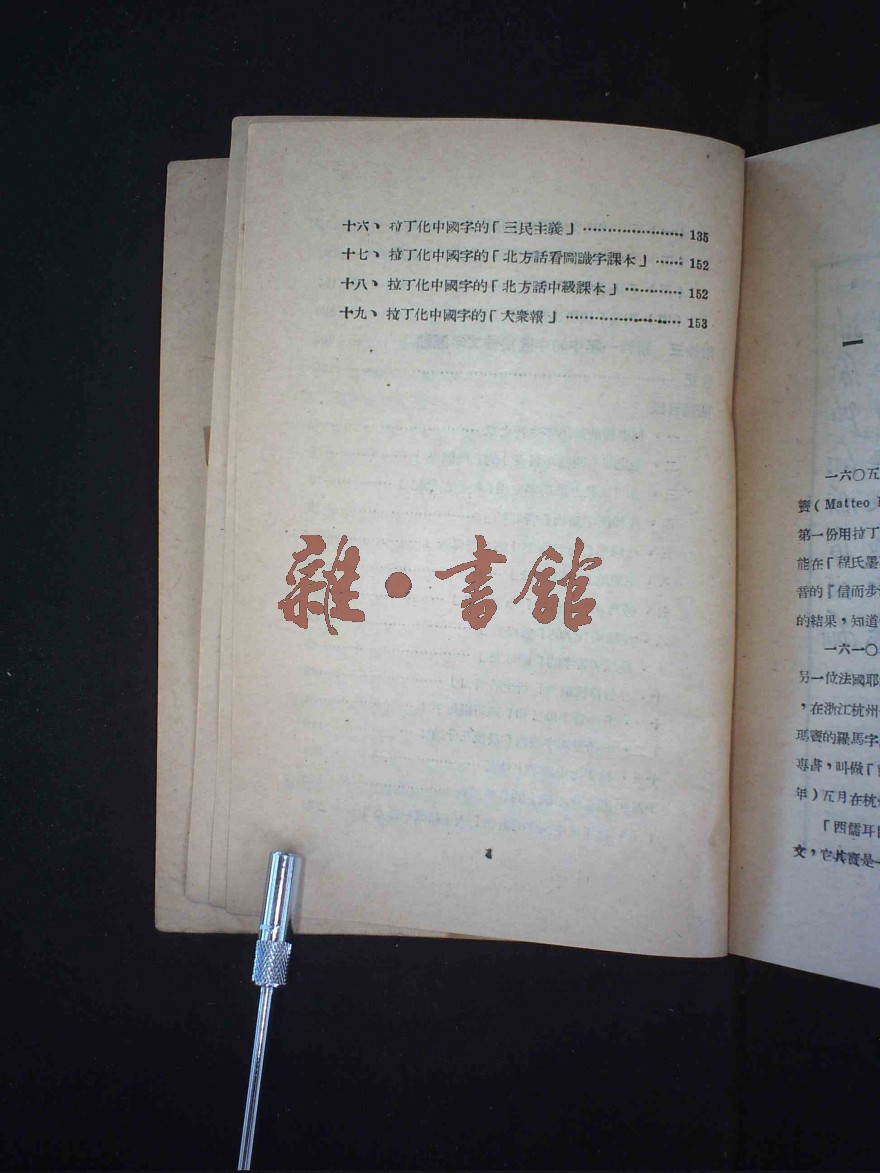 十六、拉丁化中國字的「三民主義」 135
十七、拉丁化中國字的「北方話看圖識字課本」 152
十八、拉丁化中國字的「北方話中級課本」 152
十九、拉丁化中國字的「大衆報」 153
雜·書館
一
一六〇五
寶(Matteo
第一份用拉丁
能在「程氏墨
音的『信而步
的結果，知道
一六一〇
另一位法國耶
，在浙江杭州
瑪竇的羅馬字
專書，叫做「
年)五月在杭
「西儒耳目
文，它其實是一